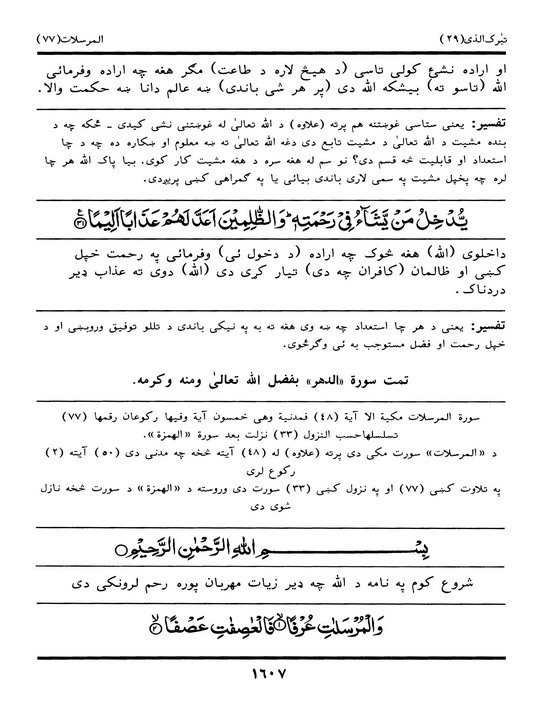 تبٰرک الذی (۲۹)
المرسلات (۷۷)
او اراده نشئ کولی تاسی (د هیڅ لاره د طاعت) مګر هغه چه اراده وفرمائی
الله (تاسو ته) بیشکه الله دی (پر هر شی باندی) ښه عالم دانا ښه حکمت والا.
تفسیر: یعنی ستاسی غوښتنه هم پرته (علاوه) د الله تعالیٰ له غوښتنی نشی کیدی ـ ځکه چه د
بنده مشیت د الله تعالیٰ د مشیت تابع دی دغه الله تعالیٰ ته ښه معلوم او ښکاره ده چه د چا
استعداد او قابلیت څه قسم دی؟ نو سم له هغه سره د هغه مشیت کار کوی. بیا پاک الله هر چا
لره چه پخپل مشیت په سمی لاری باندی بیائی یا په ګمراهی کښی پریږدی.
يُّدْخِلُ مَنْ يَّشَآءُ فِيْ رَحْمَتِهٖ ؕ وَالظّٰلِمِيْنَ اَعَدَّ لَهُمْ عَذَابًا اَلِيْمًا ﴿۳۱﴾
داخلوی (الله) هغه څوک چه اراده (د دخول ئی) وفرمائی په رحمت خپل
کښی او ظالمان (کافران چه دی) تیار کړی دی (الله) دوی ته عذاب ډیر
دردناک.
تفسیر: یعنی د هر چا استعداد چه ښه وی هغه ته به په نیکی باندی د تللو توفیق وروبښی او د
خپل رحمت او فضل مستوجب به ئی وګرځوی.
تمت سورة «الدهر» بفضل الله تعالیٰ ومنه وکرمه.
سورة المرسلات مکیة الا آیة (۴۸) فمدنیة وهی خمسون آیة وفیها رکوعان رقمها (۷۷)
تسلسلهاحسب النزول (۳۳) نزلت بعد سورة «الهمزة».
د «المرسلات» سورت مکی دی پرته (علاوه) له (۴۸) آیته څخه چه مدنی دی (۵۰) آیته (۲)
رکوع لری
په تلاوت کښی (۷۷) او په نزول کښی (۳۳) سورت دی وروسته د «الهمزة» د سورت څخه نازل
شوی دی
بِسْمِ اللهِ الرَّحْمٰنِ الرَّحِيْمِ ○
شروع کوم په نامه د الله چه ډیر زیات مهربان پوره رحم لرونکی دی
وَالْمُرْسَلٰتِ عُرْفًا ﴿۱﴾ فَالْعٰصِفٰتِ عَصْفًا ﴿۲﴾
۱۶۰۷